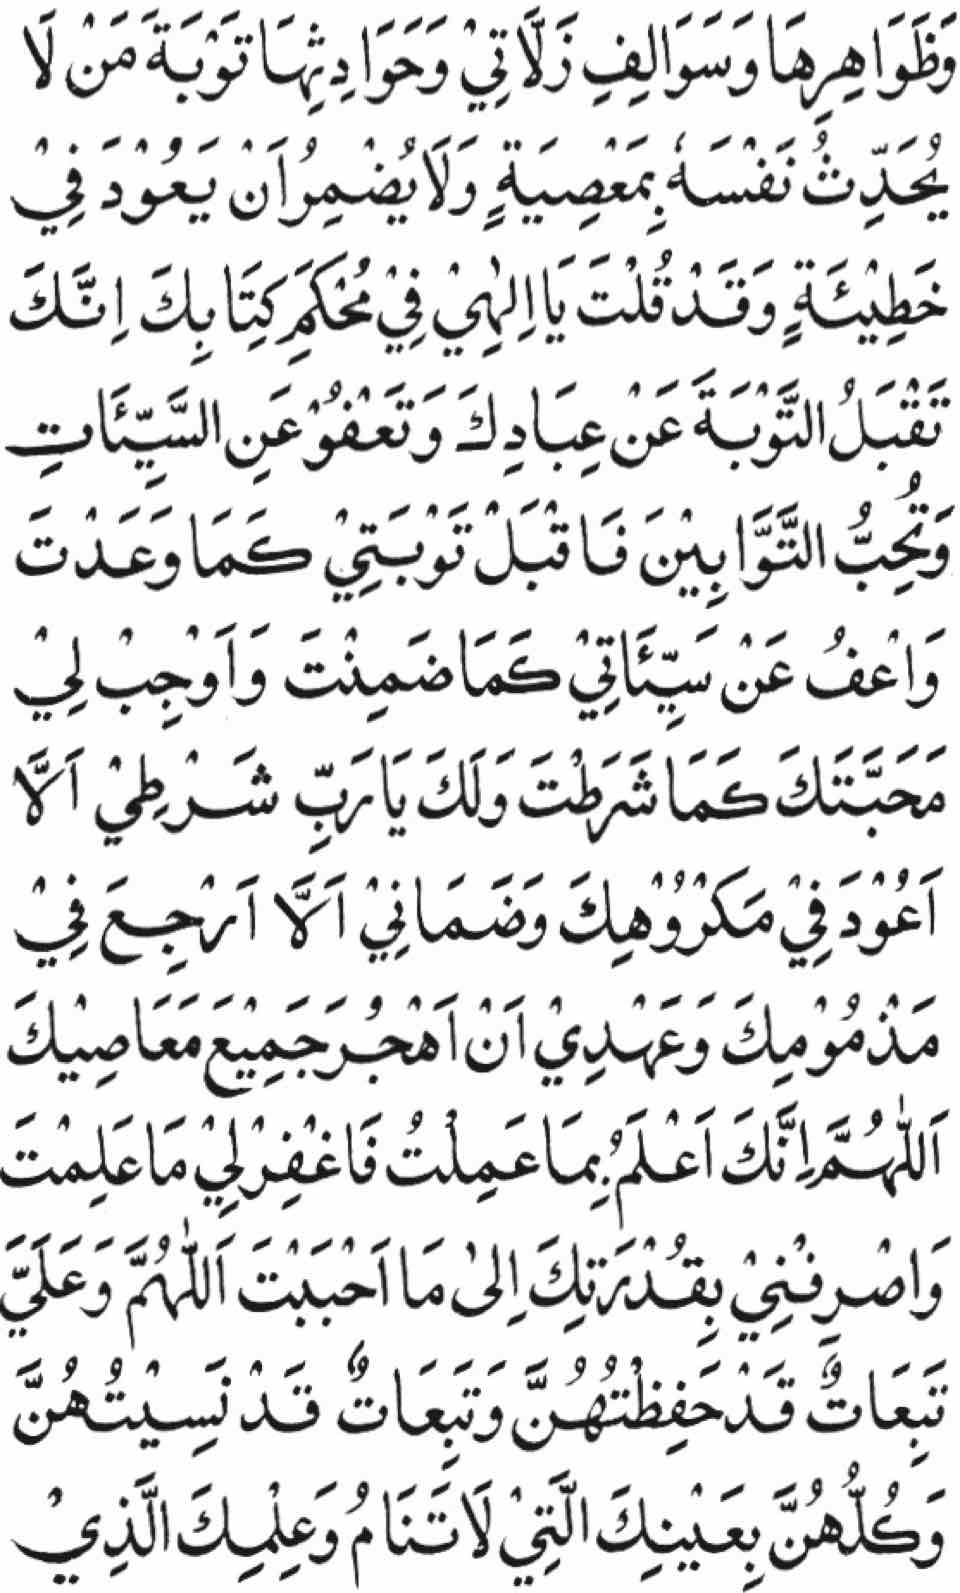 وَظَوَاهِرِهَا وَسَوَالِفِ زَلَّاتِيْ وَحَوَادِثِهَا تَوْبَةَ مَنْ لَا
يُحَدِّثُ نَفْسَهٗ بِمَعْصِيَةٍ وَلَا يُضْمِرُ اَنْ يَعُوْدَ فِيْ
خَطِيْئَةٍ وَقَدْ قُلْتَ يَا اِلٰهِيْ فِيْ مُحْكَمِ كِتَابِكَ اِنَّكَ
تَقْبَلُ التَّوْبَةَ عَنْ عِبَادِكَ وَتَعْفُوْ عَنِ السَّيِّئَاتِ
وَتُحِبُّ التَّوَّابِيْنَ فَاقْبَلْ تَوْبَتِيْ كَمَا وَعَدْتَ
وَاعْفُ عَنْ سَيِّئَاتِيْ كَمَا ضَمِنْتَ وَاَوْجِبْ لِيْ
مَحَبَّتَكَ كَمَا شَرَطْتَ وَلَكَ يَا رَبِّ شَرْطِيْ اَلَّا
اَعُوْدَ فِيْ مَكْرُوْهِكَ وَضَمَانِيْ اَلَّا اَرْجِعَ فِيْ
مَذْمُوْمِكَ وَعَهْدِيْ اَنْ اَهْجُرَ جَمِيْعَ مَعَاصِيْكَ
اَللّٰهُمَّ اِنَّكَ اَعْلَمُ بِمَا عَمِلْتُ فَاغْفِرْ لِيْ مَا عَلِمْتَ
وَاصْرِفْنِيْ بِقُدْرَتِكَ اِلٰى مَا اَحْبَبْتَ اَللّٰهُمَّ وَعَلَيَّ
تَبِعَاتٌ قَدْ حَفِظْتُهُنَّ وَتَبِعَاتٌ قَدْ نَسِيْتُهُنَّ
وَكُلُّهُنَّ بِعَيْنِكَ الَّتِيْ لَا تَنَامُ وَعِلْمِكَ الَّذِيْ